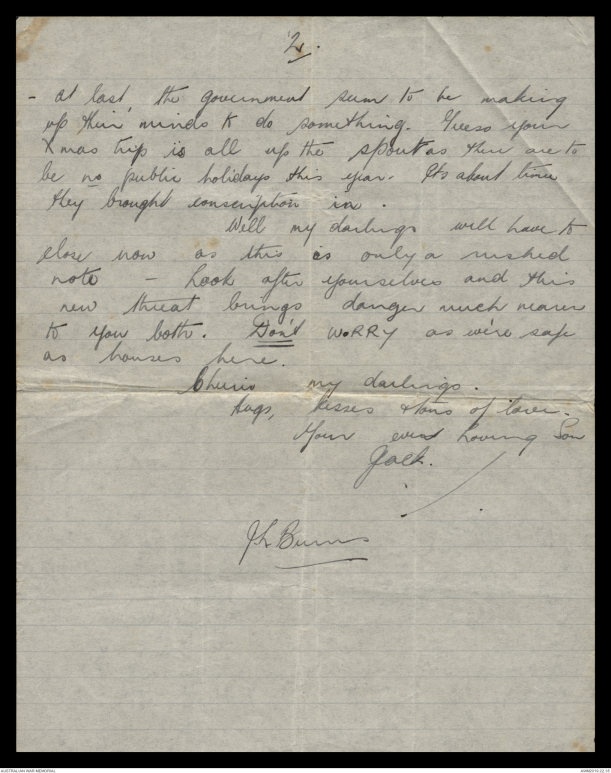 2.
- at last, the government seem to be making
up their minds to do something. Guess your
Xmas trip is all up the spout as there are to
be no public holidays this year. Its about time
they brought conscription in.
Well my darlings will have to
close now as this is only a rushed
note - Look after yourselves and this
new threat brings danger much nearer
to you both. Don't WORRY as we're safe
as houses here.
Cheerio my darlings.
Hugs, kisses & tons of love.
Your ever loving Son
Jack.
J L Burns
AUSTRALIAN WAR MEMORIAL